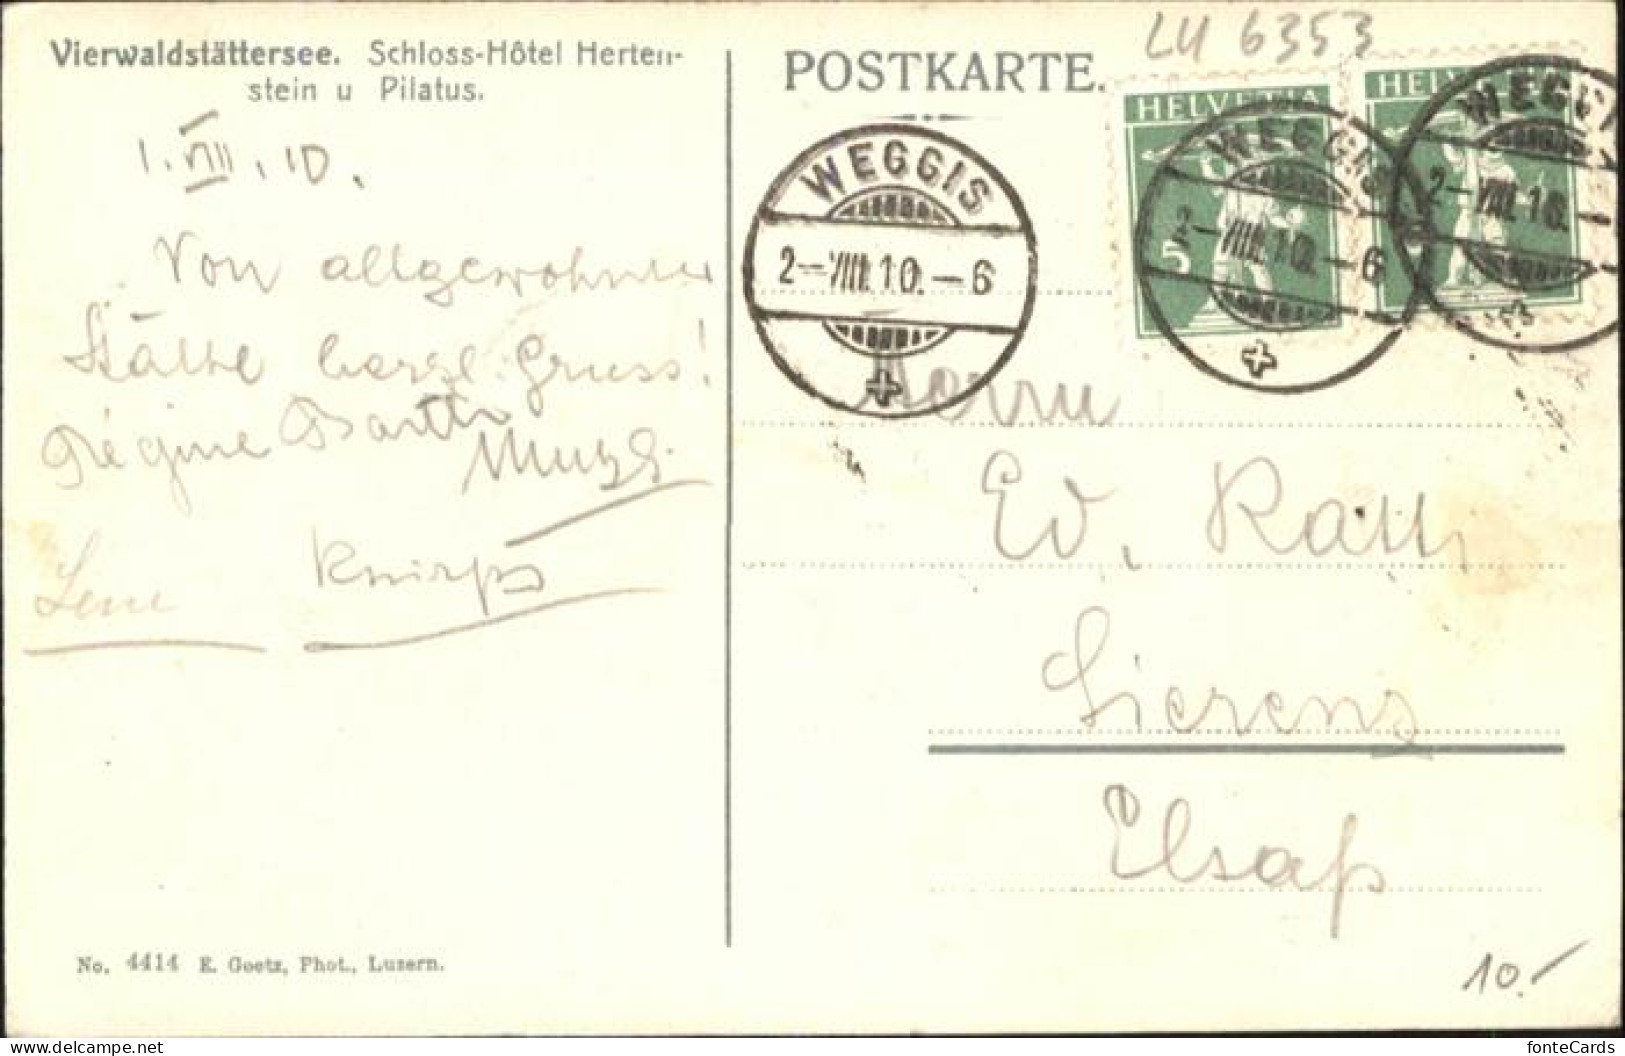 Vierwaldstättersee. Schloss-Hôtel Herten-
stein u Pilatus.
POSTKARTE.
LU 6353
HELVETIA
5
HELVETIA
WEGGIS
2-VIII.10.-6
WEGGIS
2-VIII.10.-6
WEGGIS
2-VIII.10.
1.VIII.10.
Von altgewohnter
Stätte herzl. Gruss!
Régine Barth
Lene
Knirps
Herrn
Ed. Rath
Sierenz
Elsaß
No. 4414 E. Goetz, Phot., Luzern.
10.-
fonteCards